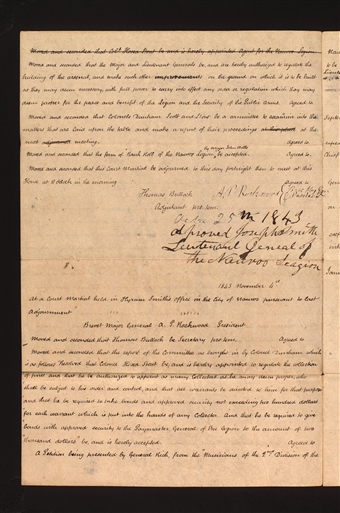 Moved and seconded that Colᵒ Hosea Stout be and is hereby appointed Agent for the Nauvoo Legion
Moved and seconded that the Major and Lieutenant Generals be, and are hereby authorized to regulate the
building of the arsenal, and make such other improvements on the ground on which it is to be built
as they may deem necessary, with full power to carry into effect any plan or regulation which they may
deem proper for the peace and benefit of the Legion and the Security of the Public Arms. Agreed to
Moved and seconded that Colonels Dunham, Scott and Stout be a committee to examine into the
matters that are laid upon the table and make a report of their proceedings at the
next meeting. Agreed to.
Moved and seconded that the form of "Rank Roll of the Nauvoo Legion by Major John Bills be accepted. Agreed to.
Moved and seconded that this Court Martial be adjourned to this day fortnight then to meet at this
Place at O'Clock in the morning Agreed to
Thomas Bullock A. P. Rockwood
Adjutant
25th 1843
Approved Joseph Smith
Lieutenant General of
the Nauvoo Legion
1843 November 4th
At a Court Martial held in Hyrum Smith's Office in the City of Nauvoo pursuant to last
Adjournment
Brevt Major General A. P. Rockwood President
Moved and seconded that Thomas Bullock be Secretary pro tem. Agreed to
Moved and seconded that the report of the Committee as brought in by Colonel Dunham, which
is as follows Resolved that Colonel Hosea Stout be, and is hereby appointed to regulate the collection
of fines and that he be authorized to appoint as many Collectors as he may deem proper, who
shall be subject to his order and control, and that all warrants be directed to him for that purpose
and that he be required to take bonds and approved security not exceeding two hundred dollars
for each warrant which is put into the hands of any Collector. And that he be required to give
bonds with approved security to the Paymaster General of the Legion to the amount of two
thousand dollars" be, and is hereby accepted. Agreed to
A Petition being presented by General Rich, from the "Musicians of the 2nd Division of the